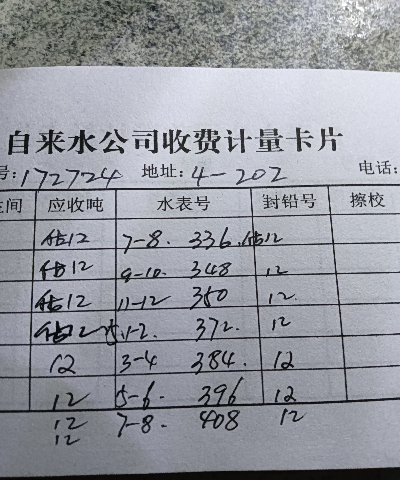 自来水公司收费计量卡片
号:172724 地址:4-202 电话:
间 应收吨 水表号 封铅号 擦校
估12 7-8. 336. 估12
估12 9-10. 348 12
估12 11-12 350 12.
1-2. 372. 12
12 3-4 384. 12
12 5-6. 396 12
12 7-8. 408 12
12